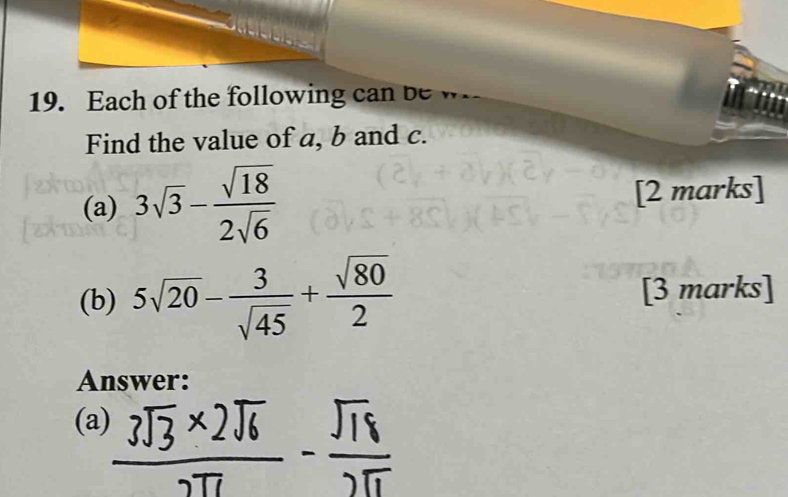 19. Each of the following can be
Find the value of a, b and c.
(a) 3√3 − √18 / 2√6 [2 marks]
(b) 5√20 − 3/√45 + √80/2 [3 marks]
Answer:
(a) 3√3 × 2√6 − √18